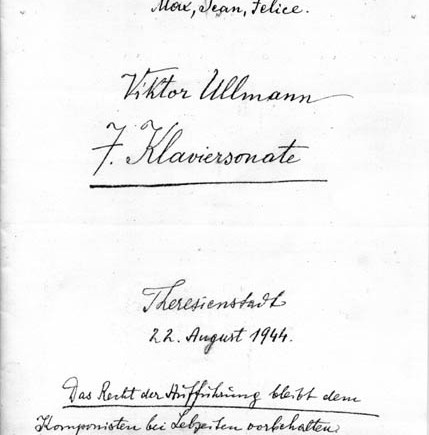 Max, Jean, Felice.
Viktor Ullmann
7. Klaviersonate
Theresienstadt
22. August 1944.
Das Recht der Aufführung bleibt dem
Komponisten bei Lebzeiten vorbehalten.